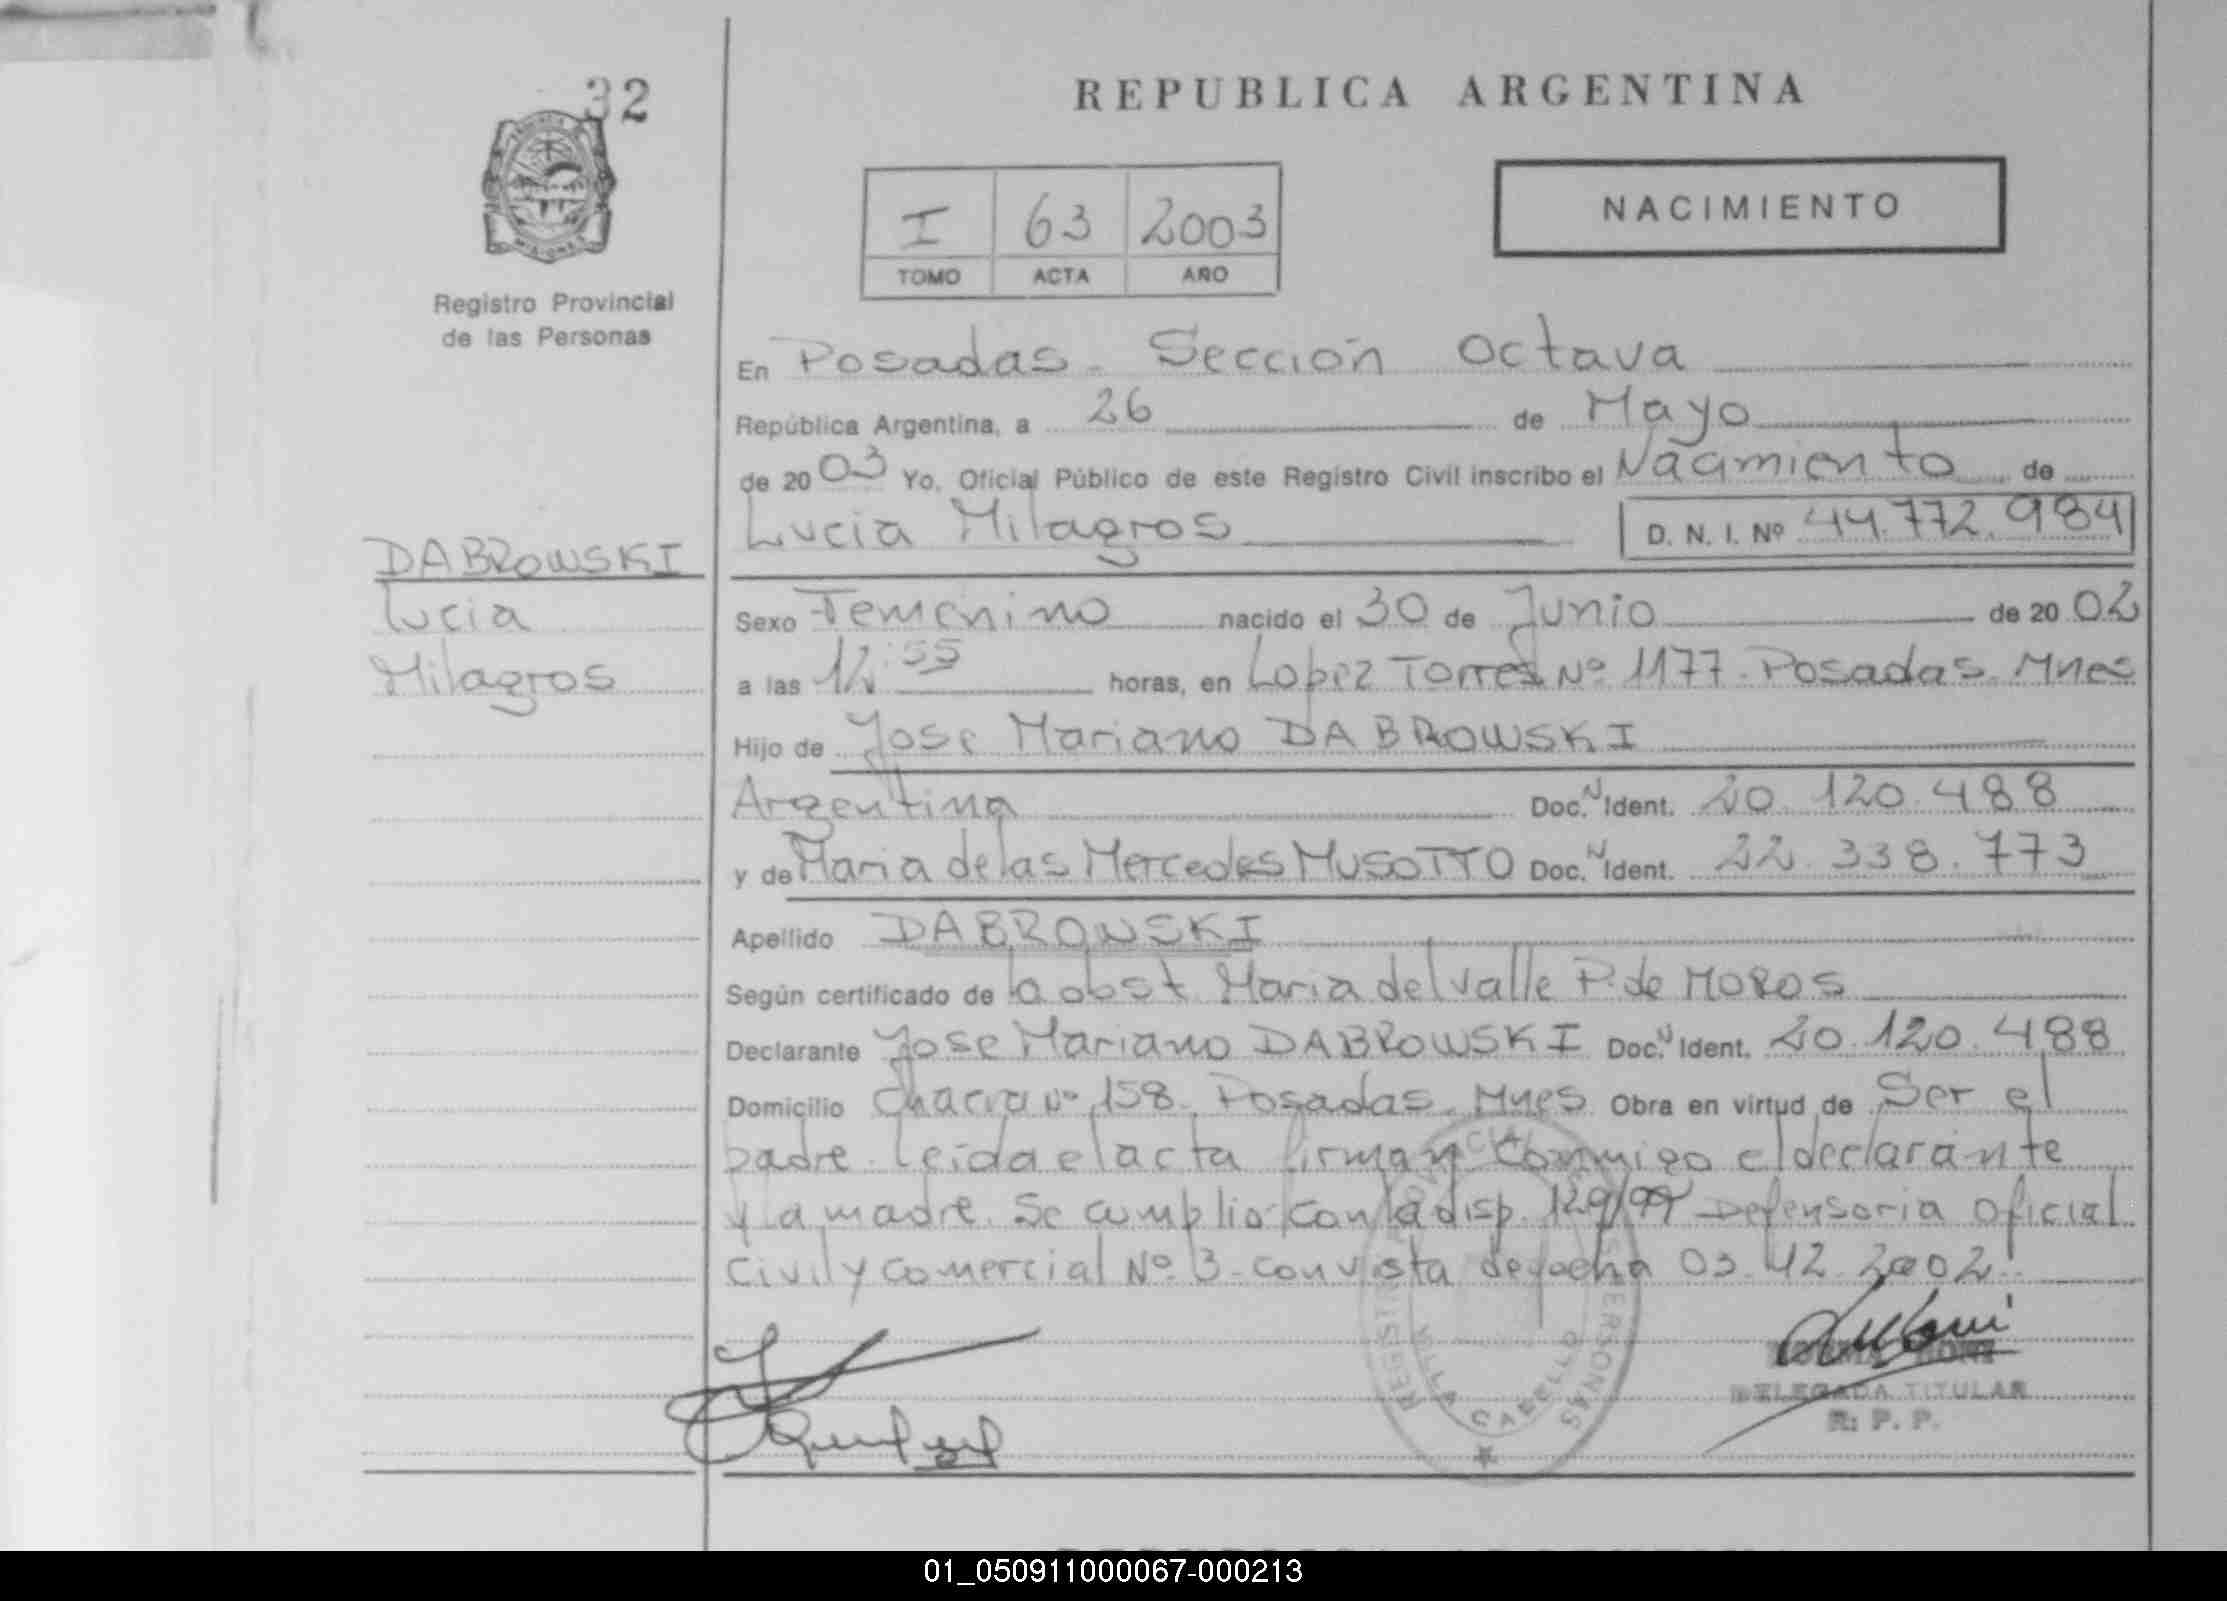 32
REPUBLICA ARGENTINA
NACIMIENTO
I 63 2003
TOMO ACTA AÑO
Registro Provincial
de las Personas
En Posadas - Sección Octava
República Argentina, a 26 de Mayo
de 2003 Yo, Oficial Público de este Registro Civil inscribo el Nacimiento de
Lucia Milagros D. N. I. Nº 44.772.984
DABROWSKI
Lucia
Milagros
Sexo Femenino nacido el 30 de Junio de 2002
a las 12:55 horas, en Lopez Torres Nº 1177 - Posadas. Mnes
Hijo de Jose Mariano DABROWSKI
Argentina Doc. N Ident. 20.120.488
y de Maria de las Mercedes MUSOTTO Doc. N Ident. 22.338.773
Apellido DABROWSKI
Según certificado de la obst Maria del Valle P. de MOROS
Declarante Jose Mariano DABROWSKI Doc. N Ident. 20.120.488
Domicilio Chacra Nº 158. Posadas. Mnes Obra en virtud de Ser el
padre. Leida el acta firman conmigo el declarante
y la madre. Se cumplio con la disp. 129/99 Defensoria Oficial
Civil y Comercial Nº 3 - con vista de fecha 03.12.2002.
REGISTRO PROVINCIAL PERSONAS
VILLA CABELLO
NORMA BONI
DELEGADA TITULAR
R. P. P.
01_050911000067-000213